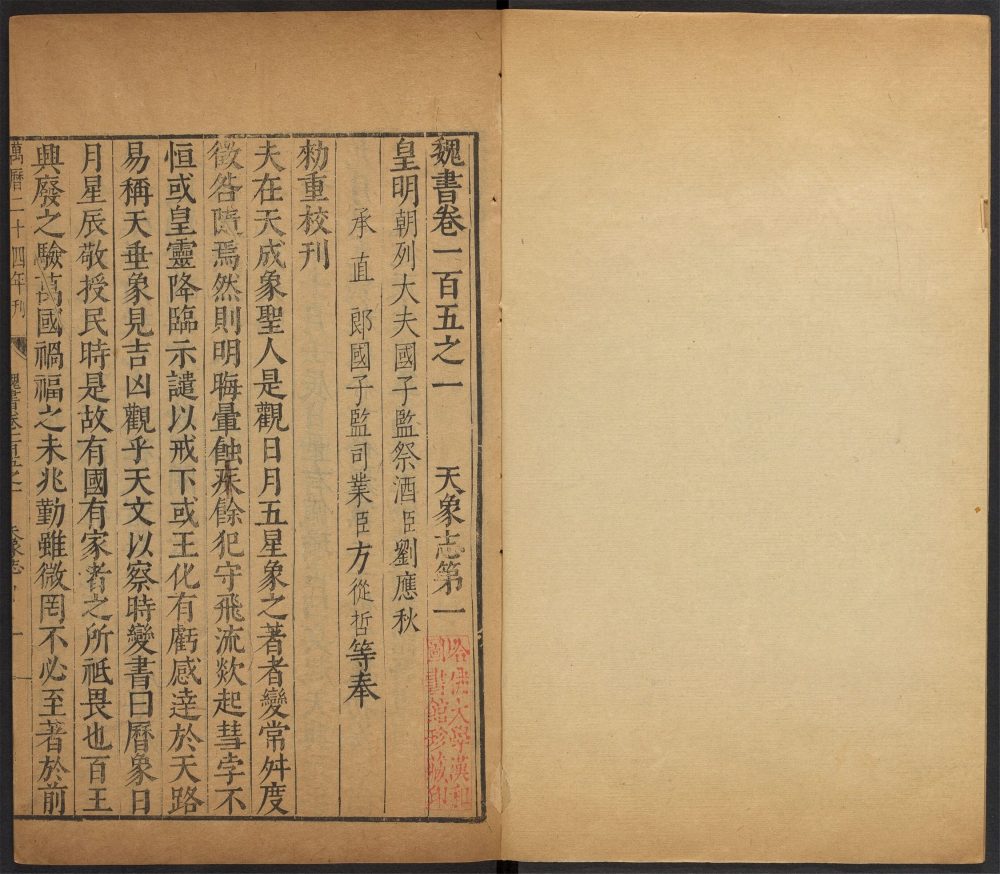 魏書卷一百五之一 天象志第一
皇明朝列大夫國子監祭酒臣劉應秋
承直郎國子監司業臣方從哲等奉
勑重校刊
夫在天成象聖人是觀日月五星象之著者變常舛度
徵咎隨焉然則明晦暈蝕疾餘犯守飛流欻起彗孛不
恒或皇靈降臨示譴以戒下或王化有虧感達於天路
易稱天垂象見吉凶觀乎天文以察時變書曰曆象日
月星辰敬授民時是故有國有家者之所祗畏也百王
興廢之驗萬國禍福之未兆勤雖微罔不必至著於前
萬曆二十四年刊 魏書卷一百五之一 天象志 一
哈佛大學漢和
圖書館珍藏印